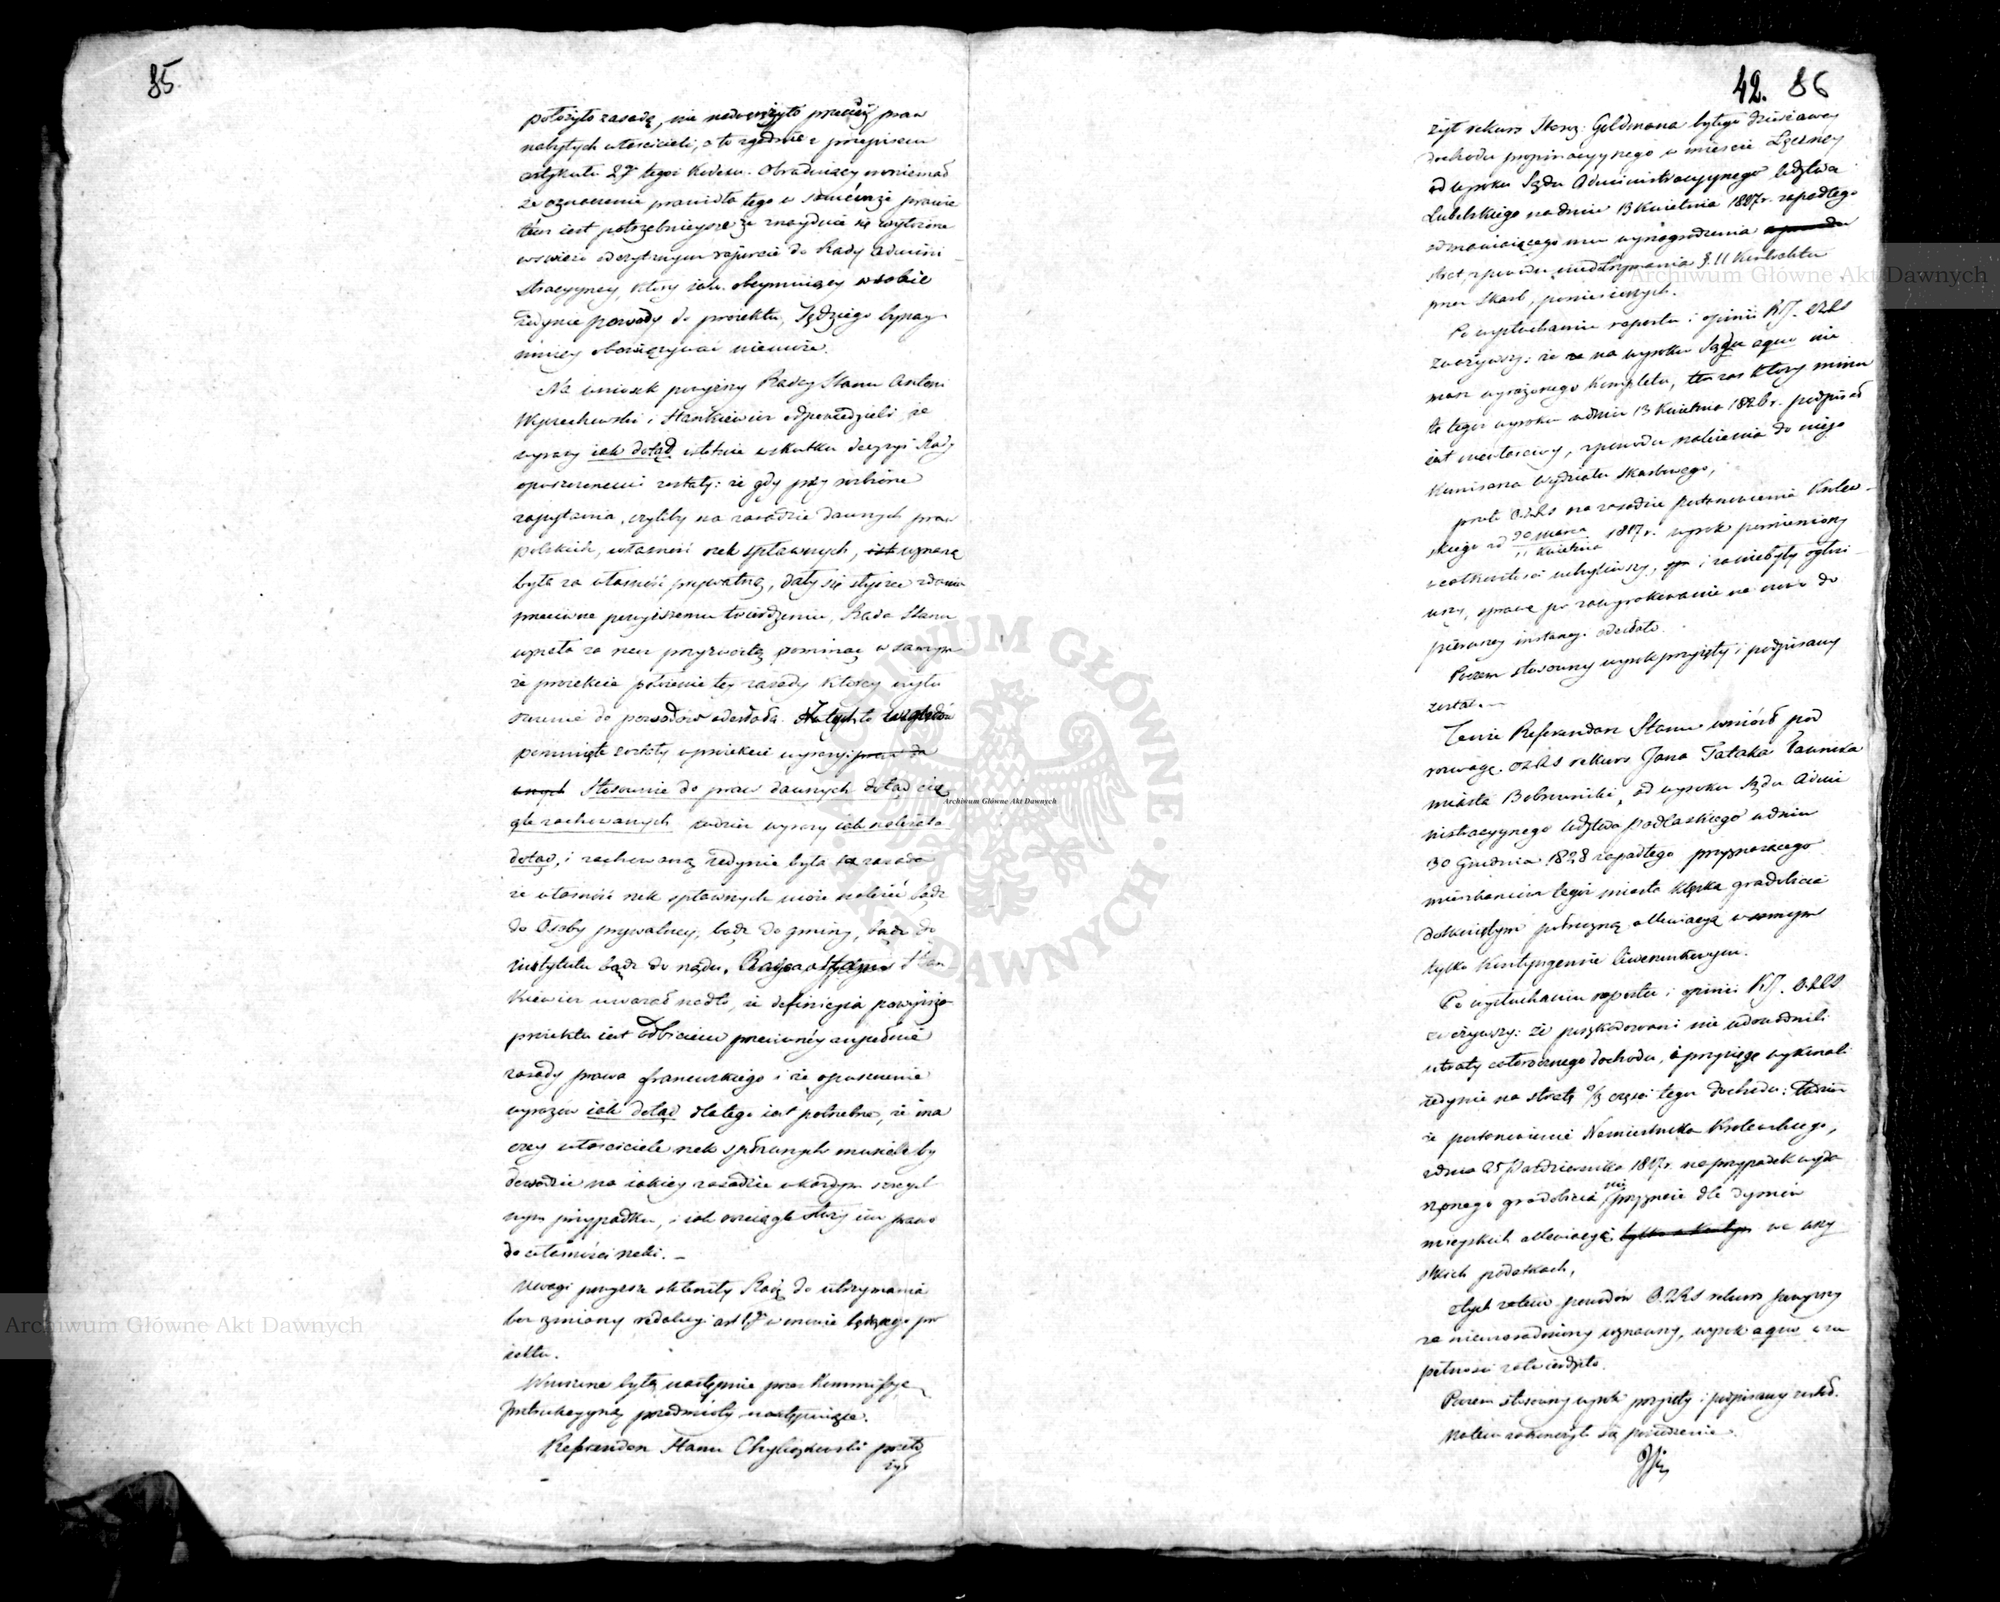 85
położyło zasadę, nie nadwerężyło przecież praw
nabytych właścicieli, a to zgodnie z przepisem
artykułu 2go tegoż Kodexu. Obradujący mniemał
że oznaczenie prawidła tego w samymże prawie
tém iest potrzebniejsze że znayduie się wytknione
w świeżo odczytanym raporcie do Rady Admini
stracyyney, który iako obeymuiący w sobie
iedynie powody do proiektu, Sędziego bynay
mniey obowięzywać niemoże.
Na wniosek powyższy Radcy Stanu Antoni
Wyczechowski i Stankiewicz odpowiedzieli że
wyrazy iak dotąd istotnie w skutku decyzyi Rady
opuszczonemi zostały: że gdy przy rozbiorze
zapytania, czyliby na zasadzie dawnych praw
polskich, własność rzek spławnych, uznaną
była za własność prywatną, dały się słyszeć zdania
przeciwne powyższemu twierdzeniu, Rada Stanu
uznała za rzecz przyzwoitą pominąć w samym
że proiekcie położenie tey zasady którey wyłu
szczenie do powodów odesłała. Z tych to względów
pominięte zostały w proiekcie wyrazy:
Stosownie do praw dawnych dotąd cią
gle zachowanych tudzież wyrazy iak należało
dotąd, i zachowaną iedynie była zasada
że własność rzek spławnych może należeć bądź
do Osoby prywatney, bądź do gminy, bądź do
instytutu bądź do rządu. Radca Stanu Stan
kiewicz uważał nadto, że definicyia powyższa
proiektu iest odbiciem przeciwnéy zupełnie
zasady prawa francuzkiego i że opuszczenie
wyrazów iak dotąd dlatego iest potrzebne, że ina
czey właściciele rzek spławnych musieliby
dowodzić na iakiey zasadzie w każdym szczegól
nym przypadku, i iak rozciągle służy im prawo
do własności rzeki. —
Uwagi powyższe skłoniły Radę do utrzymania
bez zmiany redakcyi art 1go w mowie będącego pro
iektu.
Wniesione były następnie przez Kommissyą
Instrukcyyną przedmioty następuiące.
Referendarz Stanu Chyliczkowski przeło
żył
42. 86
żył rekurs Herz: Goldmana byłego dzierżawcy
dochodu propinacyynego w mieście Łęczney
od wyroku Sądu Administracyynego Wdztwa
Lubelskiego na dniu 13 Kwietnia 1827 r. zapadłego
odmawiaiącego mu wynagrodzenia
strat, z powodu niedotrzymania §. 11 Kontraktu
przez Skarb, poniesionych.
Po wysłuchaniu raportu i opinii KJ. OZRS
zważywszy: że na wyroku Sądu a quo nie
masz wyrażonego kompletu, tenzaś który minu
tę tegoż wyroku w dniu 13 Kwietnia 1826 r. podpisał
iest niewłaściwy, z powodu należenia do niego
Kommissarza Wydziału Skarbowego,
przeto OZRS na zasadzie postanowienia Królew-
skiego z d 30 marca / 11 Kwietnia 1817 r. wyrok pomieniony
w całkowitości uchyliwszy, i za niebyły ogłosi-
wszy, sprawę po zawyrokowanie na nowo do
pierwszey instancyi odesłała.
Poczem stosowny wyrok przyjęty i podpisany
został. —
Tenże Referendarz Stanu wniósł pod
rozwagę OZRS rekurs Jana Tataka Ławnika
miasta Bobrownik, od wyroku Sądu Admi
nistracyynego Wdztwa Podlaskiego w dniu
30 Grudnia 1828 zapadłego przyznaiącego
mieszkańcom tegoż miasta klęską gradobicia
dotkniętym potrzeczną allewiacyą w samym
tylko Kontyngensie liwerunkowym.
Po wysłuchaniu raportu i opinii KJ. OZRS
zważywszy: że poszkodowani nie udowodnili
utraty całorocznego dochodu, a przysięgę wykonali
iedynie na stratę 2/3 części tegoż dochodu: tudzież
że postanowienie Namiestnika Królewskiego,
z dnia 25 Października 1817 r. na przypadek wyda
rzonego gradobicia nie przyznaie dla dymów
mieyskich allewiacyi we wszy
stkich podatkach,
Z tych zatem powodów OZRS rekurs powyższy
za nieuzasadniony uznawszy, wyrok a quo w zu
pełności zatwierdziła.
Poczem stosowny wyrok przyjęty i podpisany został.
Na tem zakończyło się posiedzenie.
Archiwum Główne Akt Dawnych
Archiwum Główne Akt Dawnych
Archiwum Główne Akt Dawnych
ARCHIWUM GŁÓWNE AKT DAWNYCH